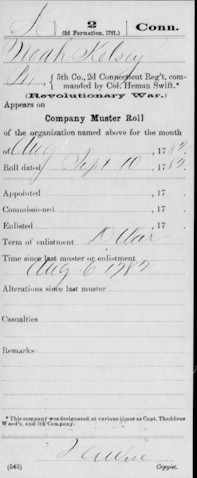 2 Conn.
(2d Formation, 1781.)
Noah Kelsey
5th Co., 2d Connecticut Reg't, com-
manded by Col. Heman Swift.*
(Revolutionary War.)
Appears on
Company Muster Roll
of the organization named above for the month
of Aug, 1782.
Roll dated Sept 10, 1782.
Appointed , 17 .
Commissioned , 17 .
Enlisted , 17 .
Term of enlistment D War
Time since last muster or enlistment
Aug 6 1782
Alterations since last muster
Casualties
Remarks:
* This company was designated at various times as Capt. Thaddeus
Weed's, and 5th Company.
(543) Copyist.